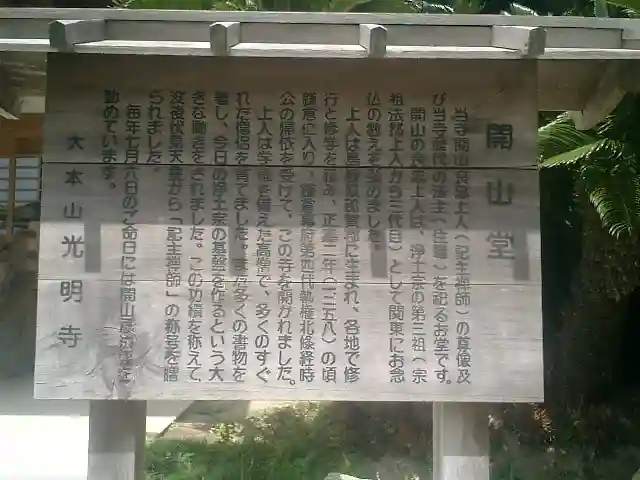 開山堂
当寺開山良忠上人（記主禅師）の尊像及
び当寺歴代の法主（住職）を祀るお堂です。
開山の良忠上人は、浄土宗の第三祖（宗
祖法然上人から三代目）として関東にお念
仏の教えを弘めました。
上人は島根県那賀郡に生まれ、各地で修
行と修学を積み、正嘉二年（一二五八）の頃
鎌倉に入り、鎌倉幕府第四代執権北條経時
公の帰依を受けて、この寺を開かれました。
上人は学徳を備えた高僧で、多くのすぐ
れた僧侶を育てました。また多くの書物を
著し、今日の浄土宗の基盤を作るという大
きな働きをされました。この功績を称えて、
没後伏見天皇から「記主禅師」の称号を贈
られました。
毎年七月六日のご命日には開山忌法要を
勤めています。
大本山光明寺